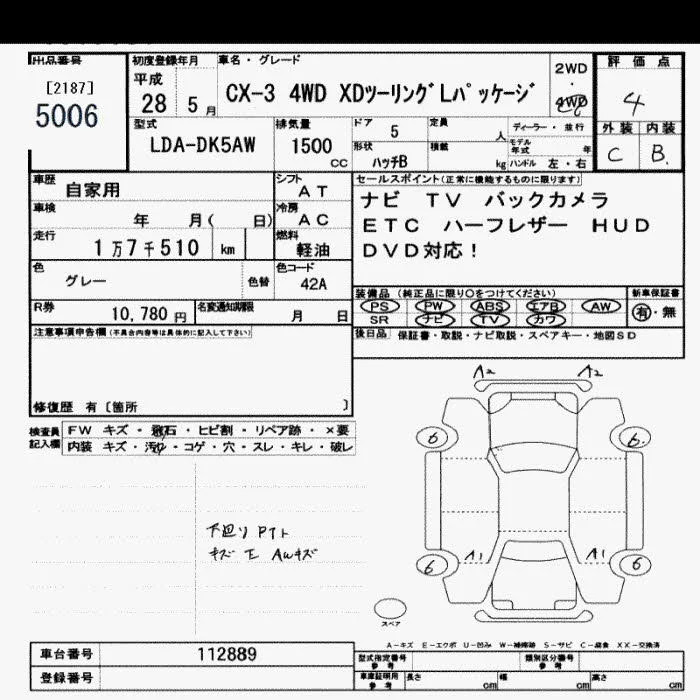 出品番号 初度登録年月 車名・グレード
[2187]
5006
平成
28 5月
CX-3 4WD XDツーリングLパッケージ
2WD
・
4WD
評価点
4
外装 内装
C B.
型式
LDA-DK5AW
排気量
1500
CC
ドア 5
形状
ハッチB
定員 人
積載 kg
ディーラー・並行
モデル年式 年
ハンドル 左・右
車歴 自家用
シフト
AT
車検 年 月( 日)
冷房
AC
走行
1万7千510 km
燃料
軽油
色
グレー
色替
色コード
42A
R券
10,780円
名変通知期限
月 日
セールスポイント(正常に機能するものに限ります)
ナビ TV バックカメラ
ETC ハーフレザー HUD
DVD対応!
装備品 (純正品に限り○をつけてください)
PS PW ABS エアB AW
SR ナビ TV カワ
新車保証書
有・無
後日品 保証書・取説・ナビ取説・スペアキー・地図SD
注意事項申告欄(不具合内容等は具体的に記入して下さい)
修復歴 有〔箇所 〕
検査員記入欄
FW キズ・飛石・ヒビ割・リペア跡・×要
内装 キズ・汚れ・コゲ・穴・スレ・キレ・破レ
A2 A2
6 6
下廻り
キズ AWキズ
A1 A1
6 6
スペア
A-キズ E-エクボ U-凹み W-補修跡 S-サビ C-腐食 XX-交換済
車台番号 112889
登録番号
型式指定番号 参考
類別区分番号 参考
車庫証明用 参考
長さ cm 幅 cm 高さ cm